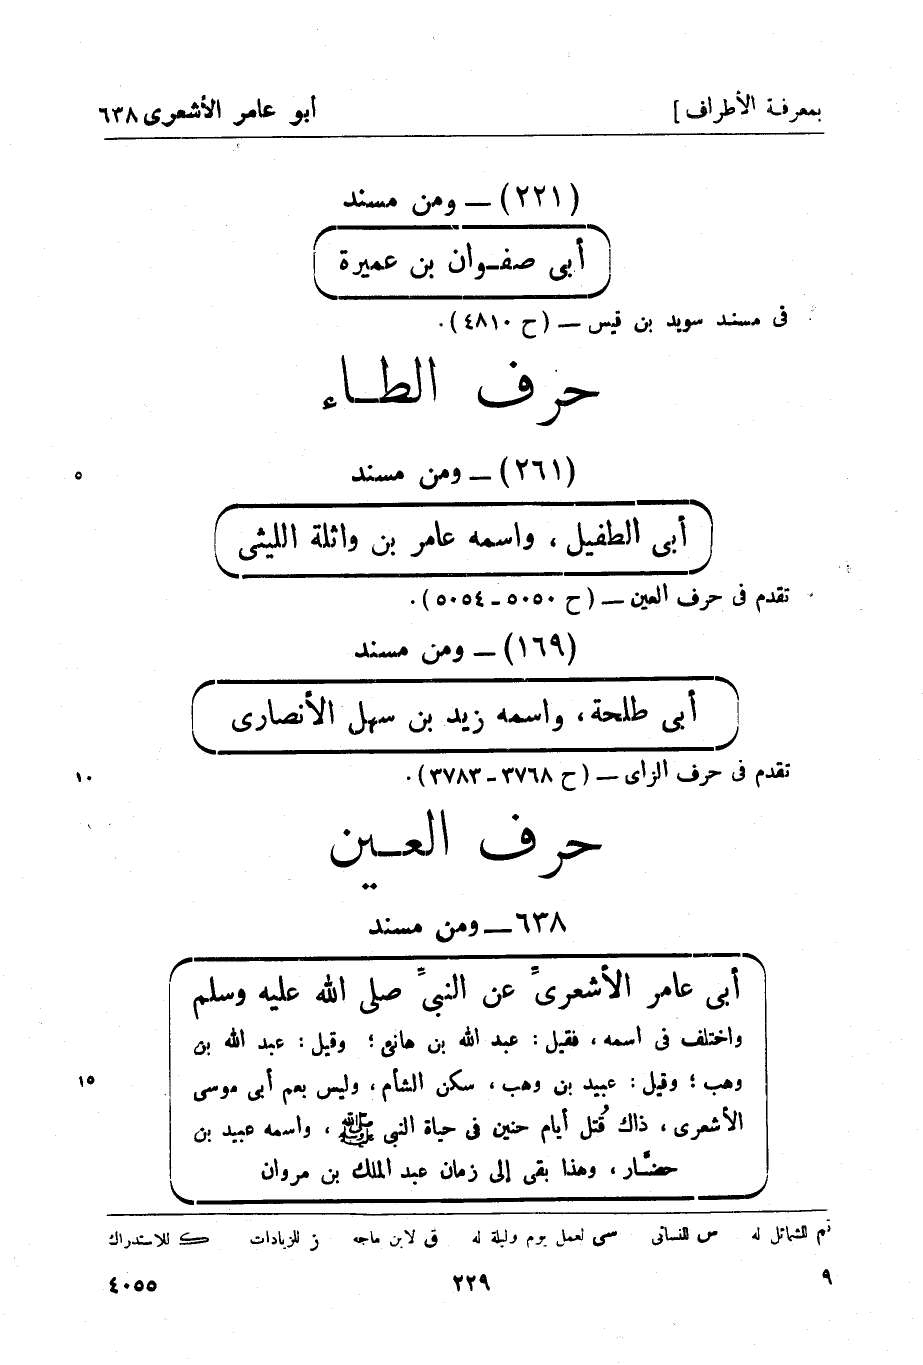 بمعرفة الأطراف ] أبو عامر الأشعرى ٦٣٨
(٢٢١) ــ ومن مسند
أبى صفـوان بن عميرة
فى مسند سويد بن قيس ــ (ح ٤٨١٠).
حرف الطـاء
(٢٦١) ــ ومن مسند
٥
أبى الطفيل، واسمه عامر بن واثلة الليثى
تقدم فى حرف العين ــ (ح ٥٠٥٠ ـ ٥٠٥٤).
(١٦٩) ــ ومن مسند
أبى طلحة، واسمه زيد بن سهل الأنصارى
تقدم فى حرف الزاى ــ (ح ٣٧٦٨ ـ ٣٧٨٣).
١٠
حرف العـين
٦٣٨ ــ ومن مسند
أبى عامر الأشعرىّ عن النبىّ صلى الله عليه وسلم
واختلف فى اسمه، فقيل: عبد الله بن هانئ؛ وقيل: عبد الله بن
وهب؛ وقيل: عبيد بن وهب، سكن الشأم، وليس بعم أبى موسى
١٥
الأشعرى، ذاك قُتل أيام حنين فى حياة النبى ﷺ، واسمه عبيد بن
حضَّار، وهذا بقى إلى زمان عبد الملك بن مروان
تم للشمائل له س للنسائى سى لعمل يوم وليلة له ق لابن ماجه ز للزيادات ك للاستدراك
٩ ٢٢٩ ٤٠٥٥